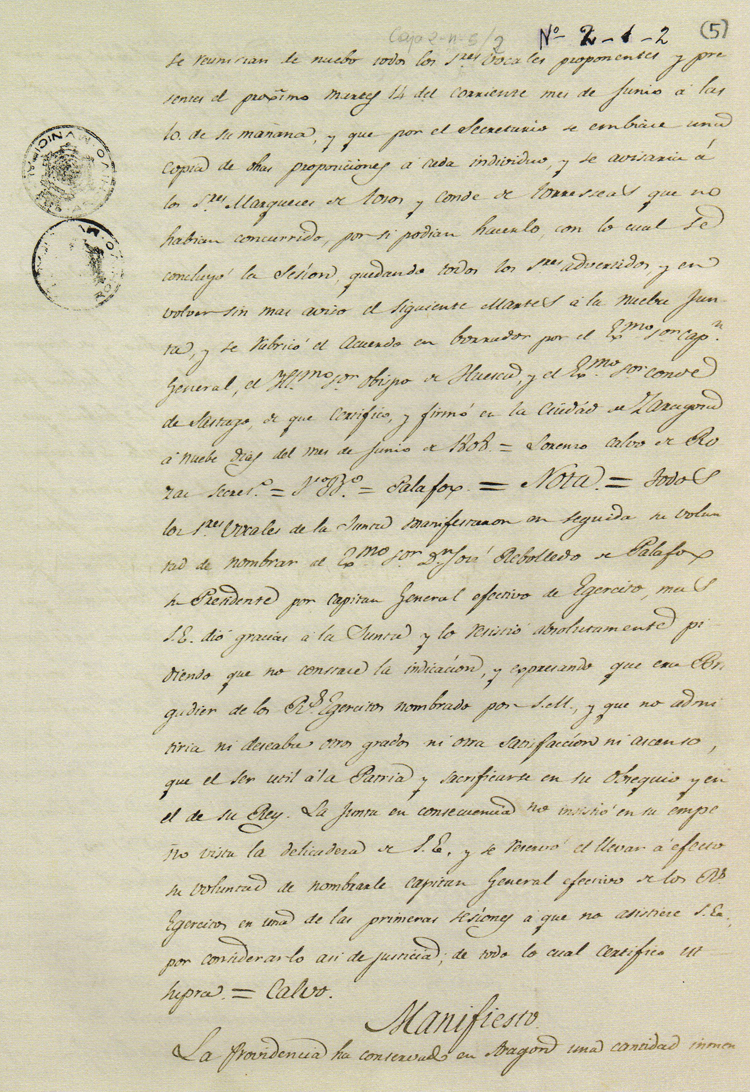 Caja 2-n-5/2 Nº 2-1-2 (5)
se reunirian de nuebo todos los Sres Vocales proponentes y pre
sentes el proximo martes 14 del corriente mes de Junio á las
10. de su mañana, y que por el Secretario se embiase una
copia de dhas proposiciones á cada individuo, y se avisaria á
los Sres Marqueses de Tosos y Conde de Torresecas que no
habian concurrido, por si podian hacerlo con lo cual se
concluyó la Sesion, quedando todos los Sres advertidos, y en
volver sin mas aviso el siguiente Martes á la nueba Jun
ta, y se rubricó el Acuerdo en borrador por el Exmo Sor capn
General, el Yllmo Sor Obispo de Huesca, y el Exmo Sor conde
de Sastago, de que certifico, y firmó en la Ciudad de Zaragoza
á nuebe dias del mes de Junio de 1808. = Lorenzo Calvo de Ro
zas Secreto. = = Palafox. = Nota. = Todos
los Sres Vocales de la Junta manifestaron en seguida su volun
tad de nombrar al Exmo Sor Dn José Rebolledo de Palafox
su Presidente por capitan General efectivo de Egercito, mas
S.E. dió gracias á la Junta y lo resistió absolutamente pi
diendo que no constase la indicacion, y expresando que era Bri
gadier de los Rs Egercitos nombrado por S.M., y que no admi
tiria ni deseaba otros grados ni otra satisfaccion ni ascenso,
que el ser util á la Patria y sacrificarse en su obsequio y en
el de su Rey. La Junta en consecuencia no insistió en su empe
ño vista la delicadeza de S.E. y se reservó el llevar á efecto
su voluntad de nombrarle capitan General efectivo de los Rs
Egercitos en una de las primeras sesiones a que no asistiese S.E.,
por considerarlo asi de justicia; de todo lo cual certifico ut
supra. = Calvo.
Manifiesto
La Providencia ha conservado en Aragon una cantidad inmen